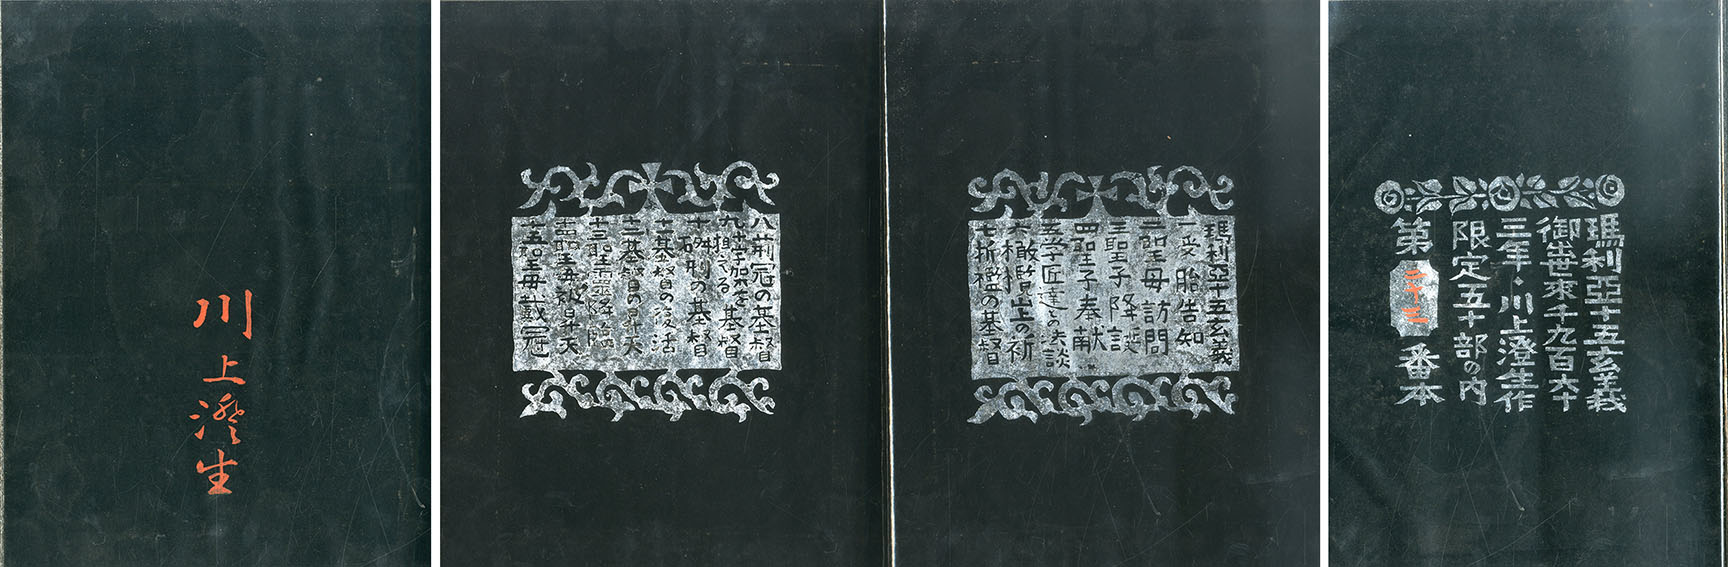 川上澄生
瑪利亞十五玄義
一受胎告知
二聖母訪問
三聖子降誕
四聖子奉献
五学匠達との法談
六橄欖山上の祈
祷
七折檻の基督
八荊冠の基督
九十字架を
担へる基督
十磔刑の基督
十一基督の復活
十二基督の昇天
十三聖霊降臨
十四聖母被昇天
十五聖母戴冠
瑪利亞十五玄義
御出世來千九百六十
三年・川上澄生作
限定五十部の内
第二十三番本